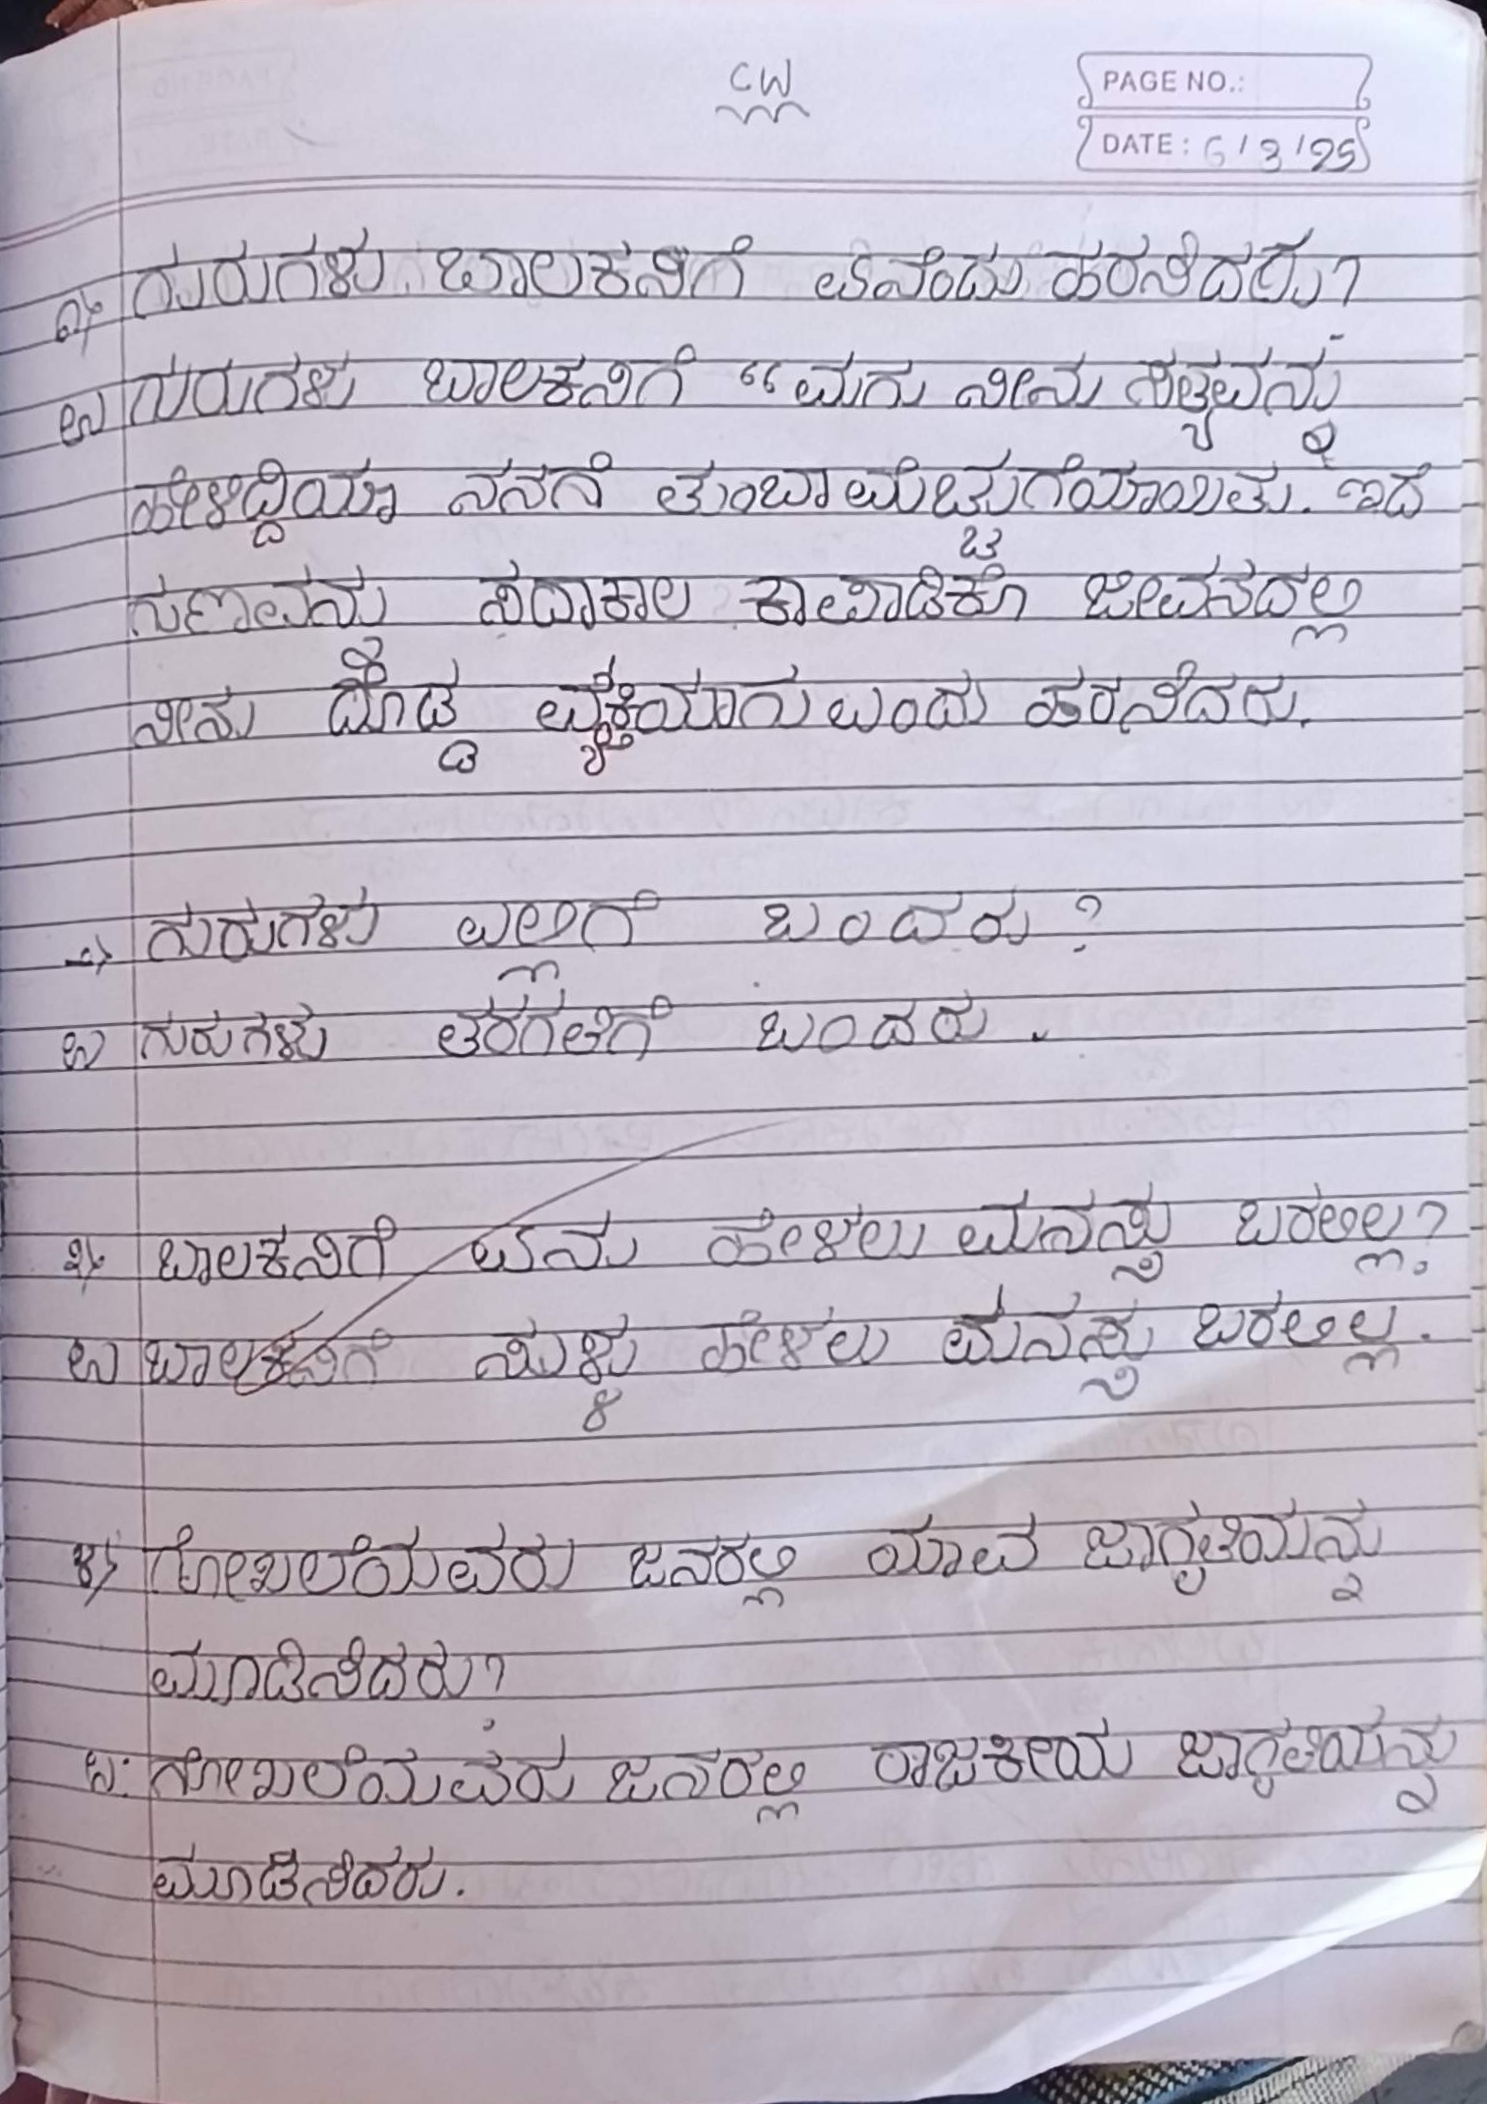 CW
PAGE NO.:
DATE: 6/3/25
೧) ಗುರುಗಳು ಬಾಲಕನಿಗೆ ಏನೆಂದು ಹರಸಿದರು?
ಉ) ಗುರುಗಳು ಬಾಲಕನಿಗೆ "ಮಗು ನೀನು ಸತ್ಯವನ್ನು
ಹೇಳಿದ್ದಿಯಾ ನನಗೆ ತುಂಬಾ ಮೆಚ್ಚುಗೆಯಾಯಿತು. ಇದೆ
ಗುಣವನು ಸದಾಕಾಲ ಕಾಪಾಡಿಕೊ ಜೀವನದಲ್ಲಿ
ನೀನು ದೊಡ್ಡ ವ್ಯಕ್ತಿಯಾಗು ಎಂದು ಹರಸಿದರು.
೨) ಗುರುಗಳು ಎಲ್ಲಿಗೆ ಬಂದರು?
ಉ) ಗುರುಗಳು ತರಗತಿಗೆ ಬಂದರು.
೩) ಬಾಲಕನಿಗೆ ಏನು ಹೇಳಲು ಮನಸ್ಸು ಬರಲಿಲ್ಲ?
ಉ) ಬಾಲಕನಿಗೆ ಸುಳ್ಳು ಹೇಳಲು ಮನಸ್ಸು ಬರಲಿಲ್ಲ.
೪) ಗೋಖಲೆಯವರು ಜನರಲ್ಲಿ ಯಾವ ಜಾಗೃತಿಯನ್ನು
ಮೂಡಿಸಿದರು?
ಉ: ಗೋಖಲೆಯವರು ಜನರಲ್ಲಿ ರಾಜಕೀಯ ಜಾಗೃತಿಯನ್ನು
ಮೂಡಿಸಿದರು.